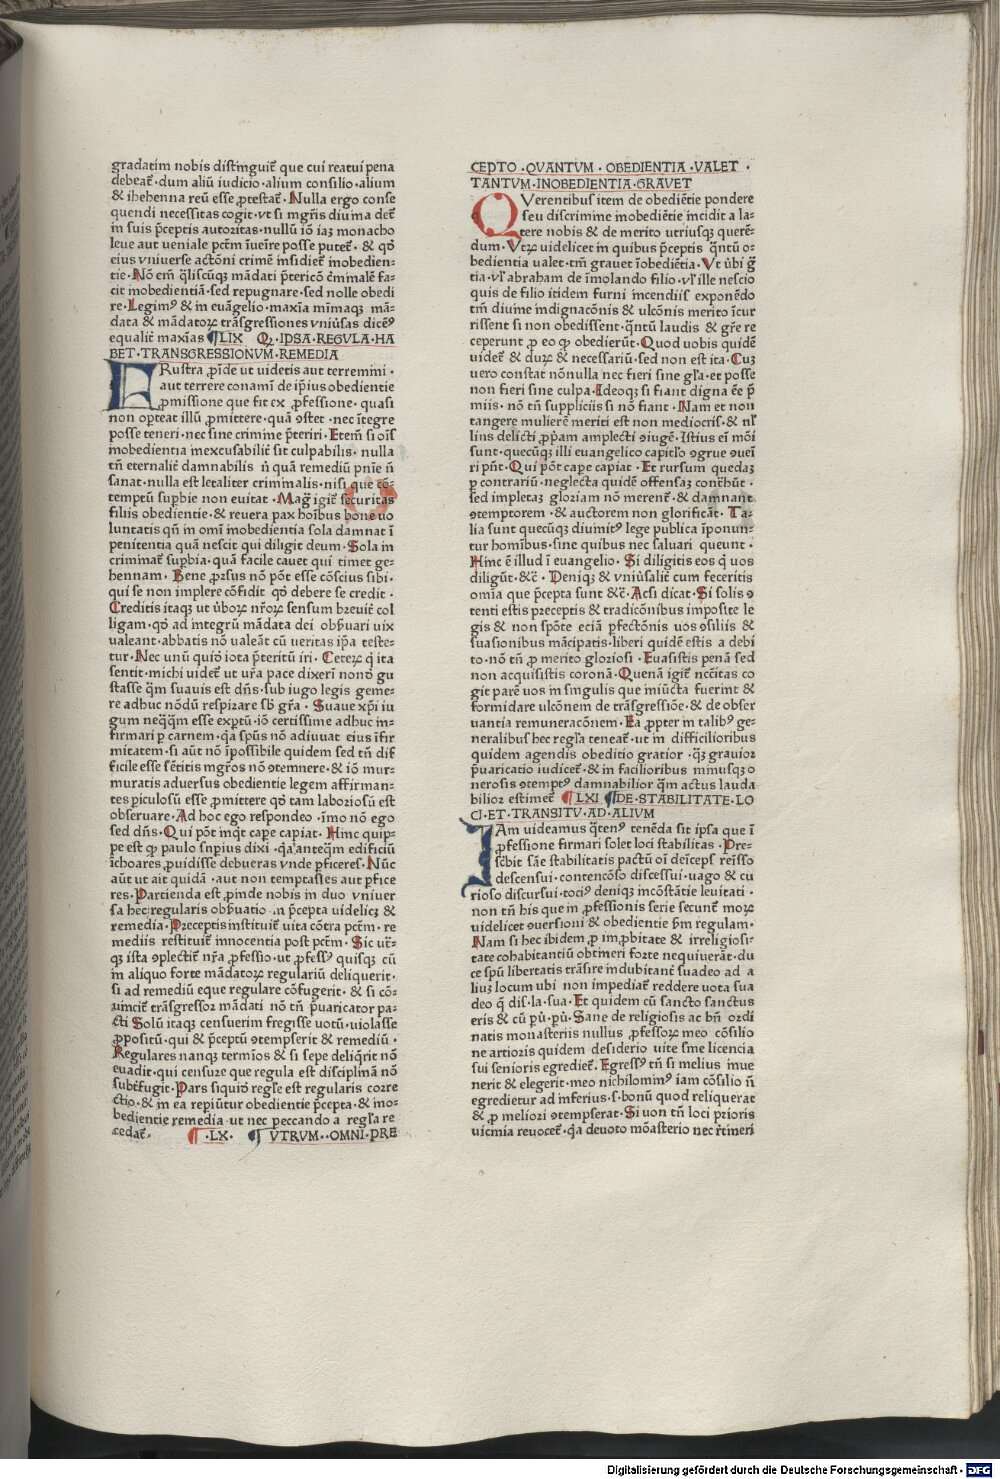 gradatim nobis distinguit̃ que cui reatui pena
debeat̃·dum aliũ iudicio·alium consilio·alium
& ihehenna reũ esse ꝓtestat̃·Nulla ergo conse
quendi necessitas cogit·vt si mgr̃is diuina det̃
in suis p̃ceptis autoritas·nullũ iõ iaꝫ monacho
leue aut veniale pctm̃ ĩueĩre posse putet̃·& qđ
eius vniuerse actõni crimẽ insidiet̃ inobedien-
tie·Nõ em̃ q̃liscũqꝫ mãdati p̃tericõ c̃minalẽ fa-
cit inobedientiã·sed repugnare·sed nolle obedi
re·Legimꝰ & in euãgelio·maxĩa mĩmaqꝫ mã-
data & mãdatoꝝ trãsgressiones vniũsas dicẽꝰ
equalit̃ maxĩas ¶LIX Q̃·IPSA·REGVLA·HA
BET·TRANSGRESSIONVM·REMEDIA
FRustra ꝓĩde ut uidetis aut terremini·
aut terrere conamĩ de ip̃ius obedientie
ꝓmissione que fit ex ꝓfessione·quasi
non oꝑteat illũ ꝓmittere·quã ꝯstet·nec ĩtegre
posse teneri·nec sine crimine p̃teriri·Etem̃ si oĩs
inobedientia inexcusabilit̃ sit culpabilis·nulla
tñ eternalit̃ damnabilis ñ quã remediũ pnĩe ñ
sanat·nulla est letaliter criminalis·nisi que cõ-
temptũ supbie non euitat·Mag̃ igit̃ securitas
filiis obedientie·& reuera pax hoĩbus bone uo
luntatis qñ in omĩ inobedientia sola damnat ĩ
penitentia quã nescit qui diligit deum·Sola in
criminat̃ supbia·quã facile cauet qui timet ge-
hennam·Bene ꝓrsus nõ põt esse cõscius sibi·
qui se non implere cõfidit qđ debere se credit·
Creditis itaqꝫ ut ũboꝝ nr̃oꝝ sensum breuit̃ col
ligam·qđ ad integrũ mãdata dei obƥuari uix
valeant·abbatis nõ valeãt cũ ueritas ip̃a teste-
tur·Nec unũ quiđ iota p̃teritũ iri·Ceteꝝ q̃ ita
sentit·michi uidet̃ ut ur̃a pace dixerĩ nonđ gu
stasse q̃m suauis est dñs·sub iugo legis geme-
re adhuc nõdũ respirare sb̃ gr̃a·Suaue xp̃i iu
gum neq̃q̃m esse exꝑtũ·iõ certissime adhuc in-
firmari ꝑ carnem·q̃a spũs nõ adiuuat eius ĩfir
mitatem·si aũt nõ ĩpossibile quidem sed tñ dif
ficile esse sẽtitis mgr̃os nõ ꝯtemnere·& iõ mur-
muratis aduersus obedientie legem affirman-
tes ꝑiculosũ esse ꝓmittere qđ tam laboriosũ est
obseruare·Ad hoc ego respondeo·ĩmo nõ ego
sed dñs·Qui põt inq̃t cape capiat·Hinc quip-
pe est q̃ paulo supius dixi·q̃a anteq̃m edificiũ
ĩchoares ꝓuidisse debueras vnde ꝑficeres·Nũc
aũt ut ait quidã·aut non temptasses aut ꝑfice
res·Partienda est ꝓinde nobis in duo vniuer
sa hec regularis obƥuatio in p̃cepta uidelicꝫ &
remedia·Preceptis instituit̃ uita cõtra pctm̃·re
mediis restituit̃ innocentia post pctm̃·Sic ut̃-
qꝫ ista ꝯplectit̃ nr̃a ꝓfessio·ut ꝓfessꝰ quisqꝫ cũ
in aliquo forte mãdatoꝝ regulariũ deliquerit·
si ad remediũ eque regulare cõfugerit·& si cõ-
uincit̃ trãsgressor mãdati nõ tñ p̃uaricator pa-
cti Solũ itaqꝫ censuerim fregisse uotũ·uiolasse
ꝓpositũ·qui & p̃ceptũ ꝯtempserit & remediũ·
Regulares nanqꝫ termĩos & si sepe deliq̃rit nõ
euadit·qui censure que regula est disciplinã nõ
subt̃fugit·Pars siquiđ regl̃e est regularis corre
ctio·& in ea repiũtur obedientie p̃cepta·& ino-
bedientie remedia·ut nec peccando a regl̃a re
cedat̃· ¶·LX· ¶ VTRVM··OMNI·PRE
CEPTO·QVANTVM·OBEDIENTIA·VALET·
TANTVM·INOBEDIENTIA·GRAVET
QVerentibus item de obediẽtie pondere
seu discrimine inobediẽtie incidit a la-
tere nobis & de merito utriusqꝫ querẽ-
dum·Vtꝝ uidelicet in quibus p̃ceptis q̃ntũ o-
bedientia ualet·tm̃ grauet ĩobediẽtia·Vt ũbi g̃
tia·vl̃ abraham de ĩmolando filio·vl̃ ille nescio
quis de filio itidem furni incendiis exponẽdo
tm̃ diuine indignacõnis & ulcõnis merito ĩcur
rissent si non obedissent·q̃ntũ laudis & gr̃e re
ceperunt ꝓ eo ꝙ obedierũt·Quod uobis quidẽ
uidet̃ & duꝝ & necessariũ·sed non est ita·Cuꝫ
vero constat nõnulla nec fieri sine gl̃a·et posse
non fieri sine culpa·Ideoqꝫ si fiant digna eẽ p̃
miis·nõ tñ suppliciis si nõ fiant·Nam et non
tangere mulierẽ meriti est non mediocris·& nl̃
lius delicti ꝓp̃am amplecti ꝯiugẽ·Istius ei̾ mõi
sunt·quecũqꝫ illi euangelico capitl̃o ꝯgrue ꝯueĩ
ri pñt·Qui põt cape capiat·Et rursum quedaꝫ
ꝑ contrariũ·neglecta quidẽ offensaꝫ cont̃hũt·
sed impletaꝫ gloriam nõ merent̃·& damnant
ꝯtemptorem·& auctorem non glorificãt·Ta-
lia sunt quecũqꝫ diuinitꝰ lege publica ĩponun-
tur homĩbus·sine quibus nec saluari queunt·
Hinc ẽ illud ĩ euangelio·Si diligitis eos q̃ uos
diligũt·&c̃·Deniqꝫ & vniũsalit̃ cum feceritis
omĩa que p̃cepta sunt &c̃·Acsi dicat·Si solis ꝯ
tenti estis preceptis & tradicõnibus imposite le
gis & non spõte eciã ꝑfectõnis uos ꝯsiliis &
suasionibus mãcipatis·liberi quidẽ estis a debi
to·nõ tñ ꝓ merito gloriosi·Euasistis penã sed
non acquisistis coronã·Quenã igit̃ ncc̃itas co
git parẽ uos in singulis que iniũcta fuerint &
formidare ulcõnem de trãsgressiõe·& de obser
uantia remuneracõnem·Ea ꝓpter in talibꝰ ge-
neralibus hec regl̃a teneat̃·ut in difficilioribus
quidem agendis obeditio gratior·q̃ꝫ grauior
p̃uaricatio iudicet̃·& in facilioribus minusqꝫ o
nerosis ꝯtemptꝰ damnabilior q̃m actus lauda
bilior estimet̃ ¶LXI ¶DE·STABILITATE·LO
CI·ET·TRANSITV·AD·ALIVM
IAm uideamus q̃tenꝰ tenẽda sit ipsa que ĩ
ꝓfessione firmari solet loci stabilitas·Pre-
scbit sãe stabilitatis pactũ oĩ deĩceps reĩsso
descensui·contencõso discessui·uago & cu
rioso discursui·tociꝰ deniqꝫ incõstãtie leuitati·
non tñ his que in ꝓfessionis serie secunt̃ moꝝ
uidelicet ꝯuersioni & obedientie ƥm regulam·
Nam si hec ibidem ꝓ imꝓbitate & irreligiosi-
tate cohabitantiũ obtineri forte nequiuerãt·du
ce spũ libertatis trãsire indubitant̃ suadeo ad a
liuꝫ locum ubi non impediat̃ reddere uota sua
deo q̃ dis·la·sua·Et quidem cũ sancto sanctus
eris & cũ pũ·pũ·Sane de religiosis ac bñ ordi
natis monasteriis nullus ꝓfessoꝝ meo cõsilio
ne artioris quidem desiderio uite sine licencia
sui senioris egrediet̃·Egressꝰ tñ si melius inue
nerit & elegerit·meo nichilominꝰ iam cõsilio ñ
egredietur ad inferius·s·bonũ quod reliquerat
& ꝓ meliori ꝯtempserat·Si uon tñ loci prioris
uicinia reuocet̃·q̃a deuoto mõasterio nec r̃tineri
Digitalisierung gefördert durch die Deutsche Forschungsgemeinschaft - DFG